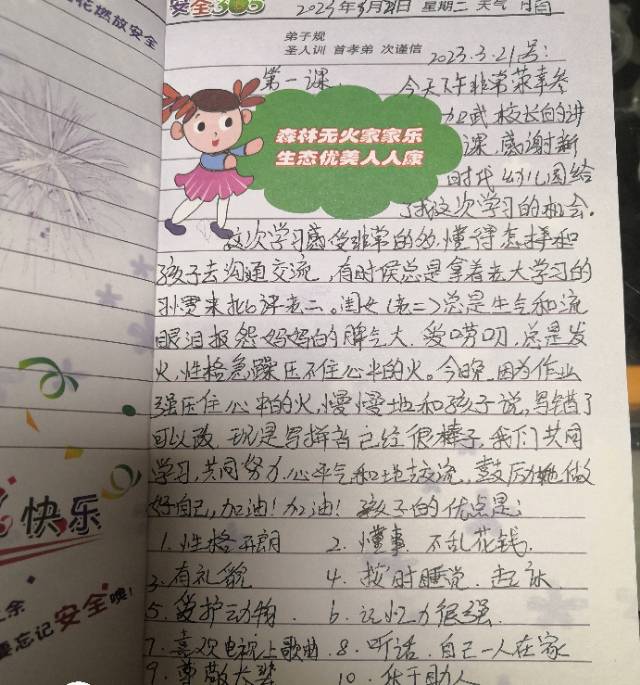 花燃放安全
安全365
2023年3月21日 星期二 天气 晴
弟子规
圣人训 首孝弟 次谨信
2023.3.21号:
第一课
今天下午非常荣幸参
加武校长的讲
森林无火家家乐
课,感谢新
生态优美人人康
时代幼儿园给
了我这次学习的机会。
这次学习感受非常的多,懂得怎样和
孩子去沟通交流,有时候总是拿着老大学习的
来批评老二。闺女(老二)总是生气和流
眼泪报怨妈妈的脾气大,爱唠叨,总是发
火,性格急躁压不住心中的火。今晚,因为作业
强压住心中的火,慢慢地和孩子说,写错了
可以改,现是写拼音已经很棒了,我们共同
学习,共同努力,心平气和地交流,鼓励她做
好自己,加油!加油!孩子的优点是:
快乐
1.性格开朗 2.懂事,不乱花钱.
3.有礼貌 4.按时睡觉.起床
忘记安全噢!
5.爱护动物. 6.记忆力很强.
7.喜欢电视上歌曲.8.听话.自己一人在家
9.尊敬长辈 10.乐于助人